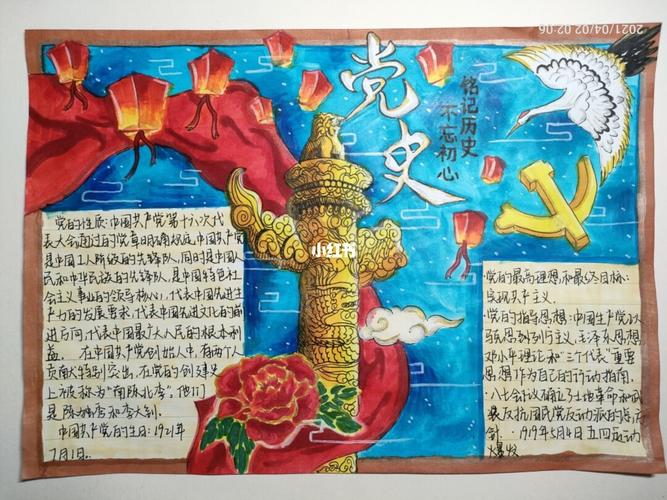 2021/04/02 02:06
党史
铭记历史
不忘初心
小红书
党的性质:中国共产党第十六次代
表大会通过的党章明确规定,中国共产党
是中国工人阶级的先锋队,同时是中国人
民和中华民族的先锋队,是中国特色社
会主义事业的领导核心,代表中国先进生
产力的发展要求,代表中国先进文化的前
进方向,代表中国最广大人民的根本利
益。 在中国共产党创始人中,有两个人
贡献特别突出,在党的创建史
上被称为“南陈北李”,他们
是陈独秀和李大钊。
中国共产党的生日:1921年
7月1日.
党的最高理想和最终目标:
实现共产主义.
·党的指导思想:中国共产党以马
列主义,毛泽东思想
邓小平理论和“三个代表”重要
思想作为自己的行动指南.
·八七会议确定了土地革命和武
装反抗国民党反动派的总方
针. ·1919年5月4日五四运动
爆发